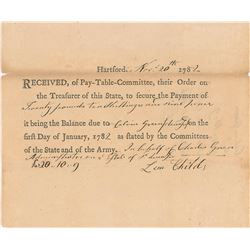 Hartford, Novr 20th 1782
RECEIVED, of Pay-Table-Committee, their Order on
the Treasurer of this State, to secure the Payment of
Twenty pounds ten shillings and nine pence
it being the Balance due to Calvin
first Day of January, 1782 as stated by the Committees
of the State and of the Army. In behalf of Charles
Administrator on Estate of
£20-10-9 Lem Child